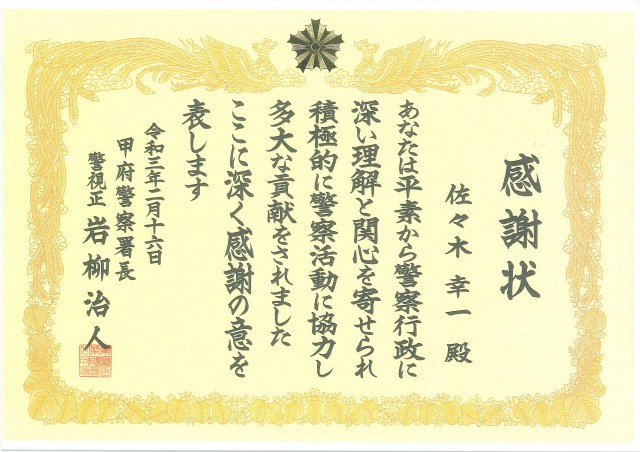 感謝状
佐々木幸一殿
あなたは平素から警察行政に
深い理解と関心を寄せられ
積極的に警察活動に協力し
多大な貢献をされました
ここに深く感謝の意を
表します
令和三年二月十六日
甲府警察署長
警視正 岩柳治人